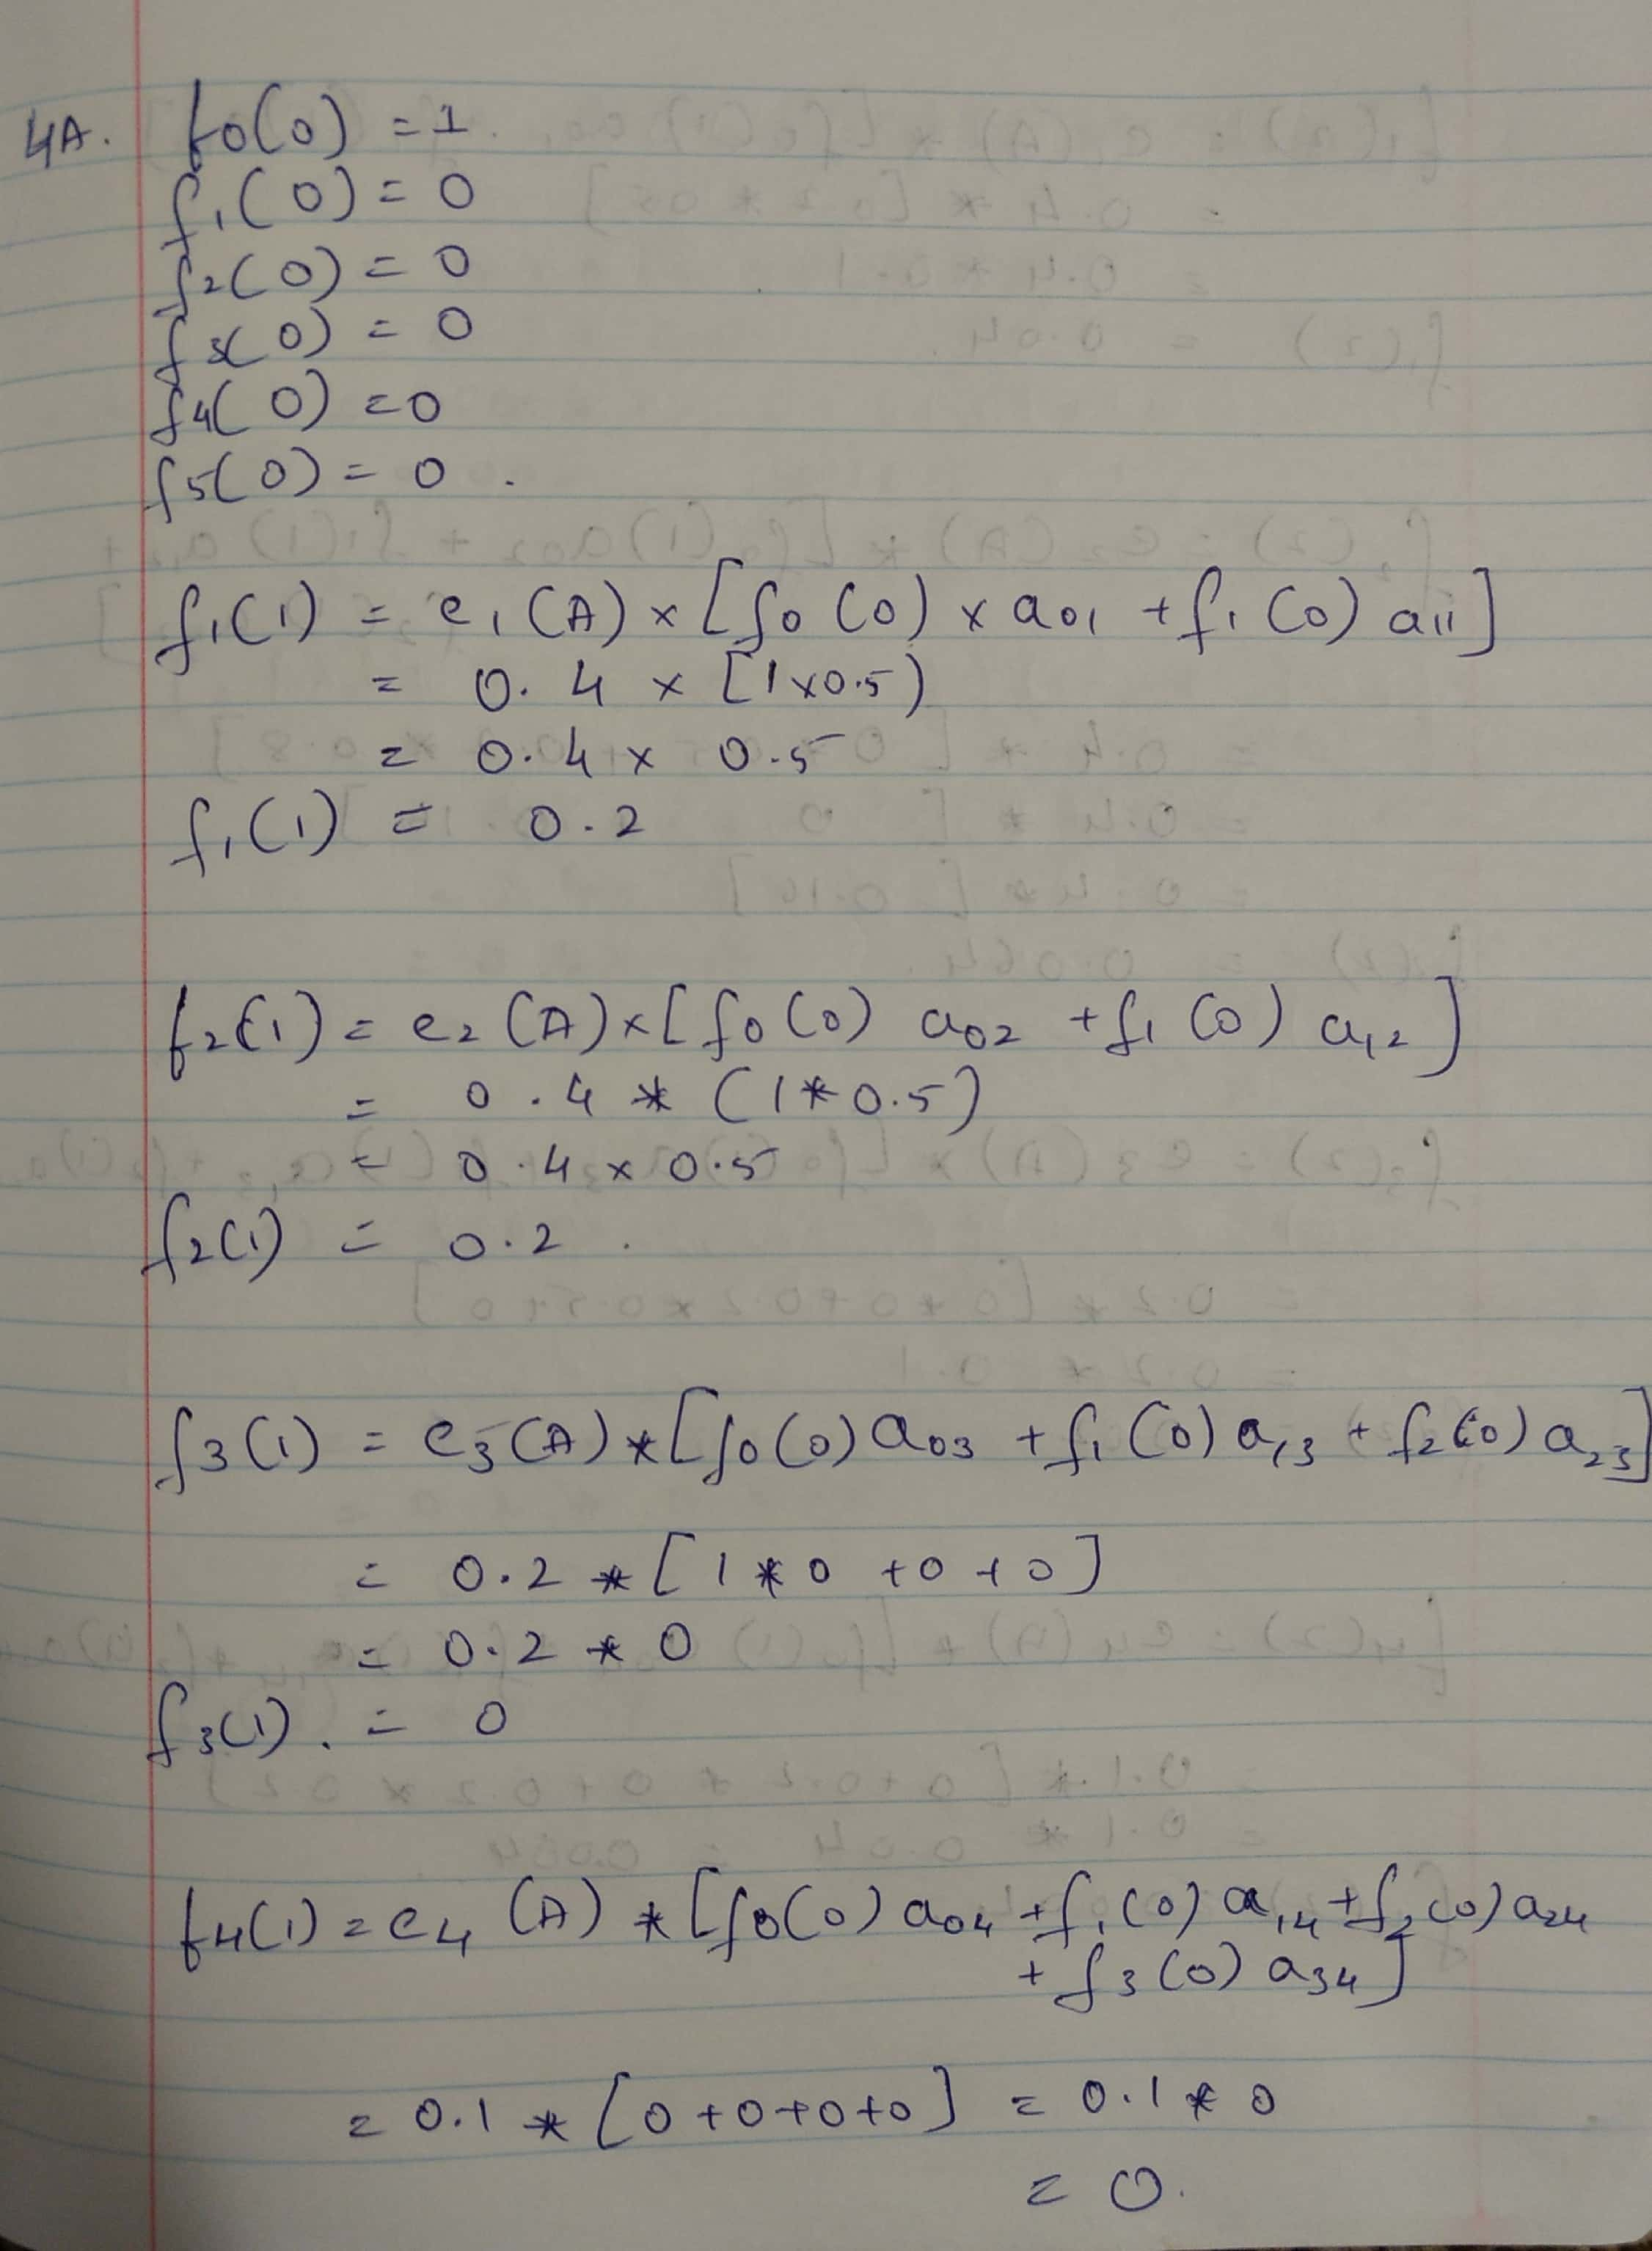 4A. f0(0) = 1
f1(0) = 0
f2(0) = 0
f3(0) = 0
f4(0) = 0
f5(0) = 0.
f1(1) = e1(A) x [f0(0) x a01 + f1(0) a11]
= 0.4 x [1x0.5)
= 0.4 x 0.5
f1(1) = 0.2
f2(1) = e2(A) x [f0(0) a02 + f1(0) a12]
= 0.4 * (1*0.5)
= 0.4 x 0.5
f2(1) = 0.2.
f3(1) = e3(A) * [f0(0) a03 + f1(0) a13 + f2(0) a23]
= 0.2 * [1*0 +0 +0]
= 0.2 * 0
f3(1). = 0
f4(1) = e4(A) * [f0(0) a04 + f1(0) a14 + f2(0) a24
+ f3(0) a34]
= 0.1 * [0+0+0+0] = 0.1 * 0
= 0.